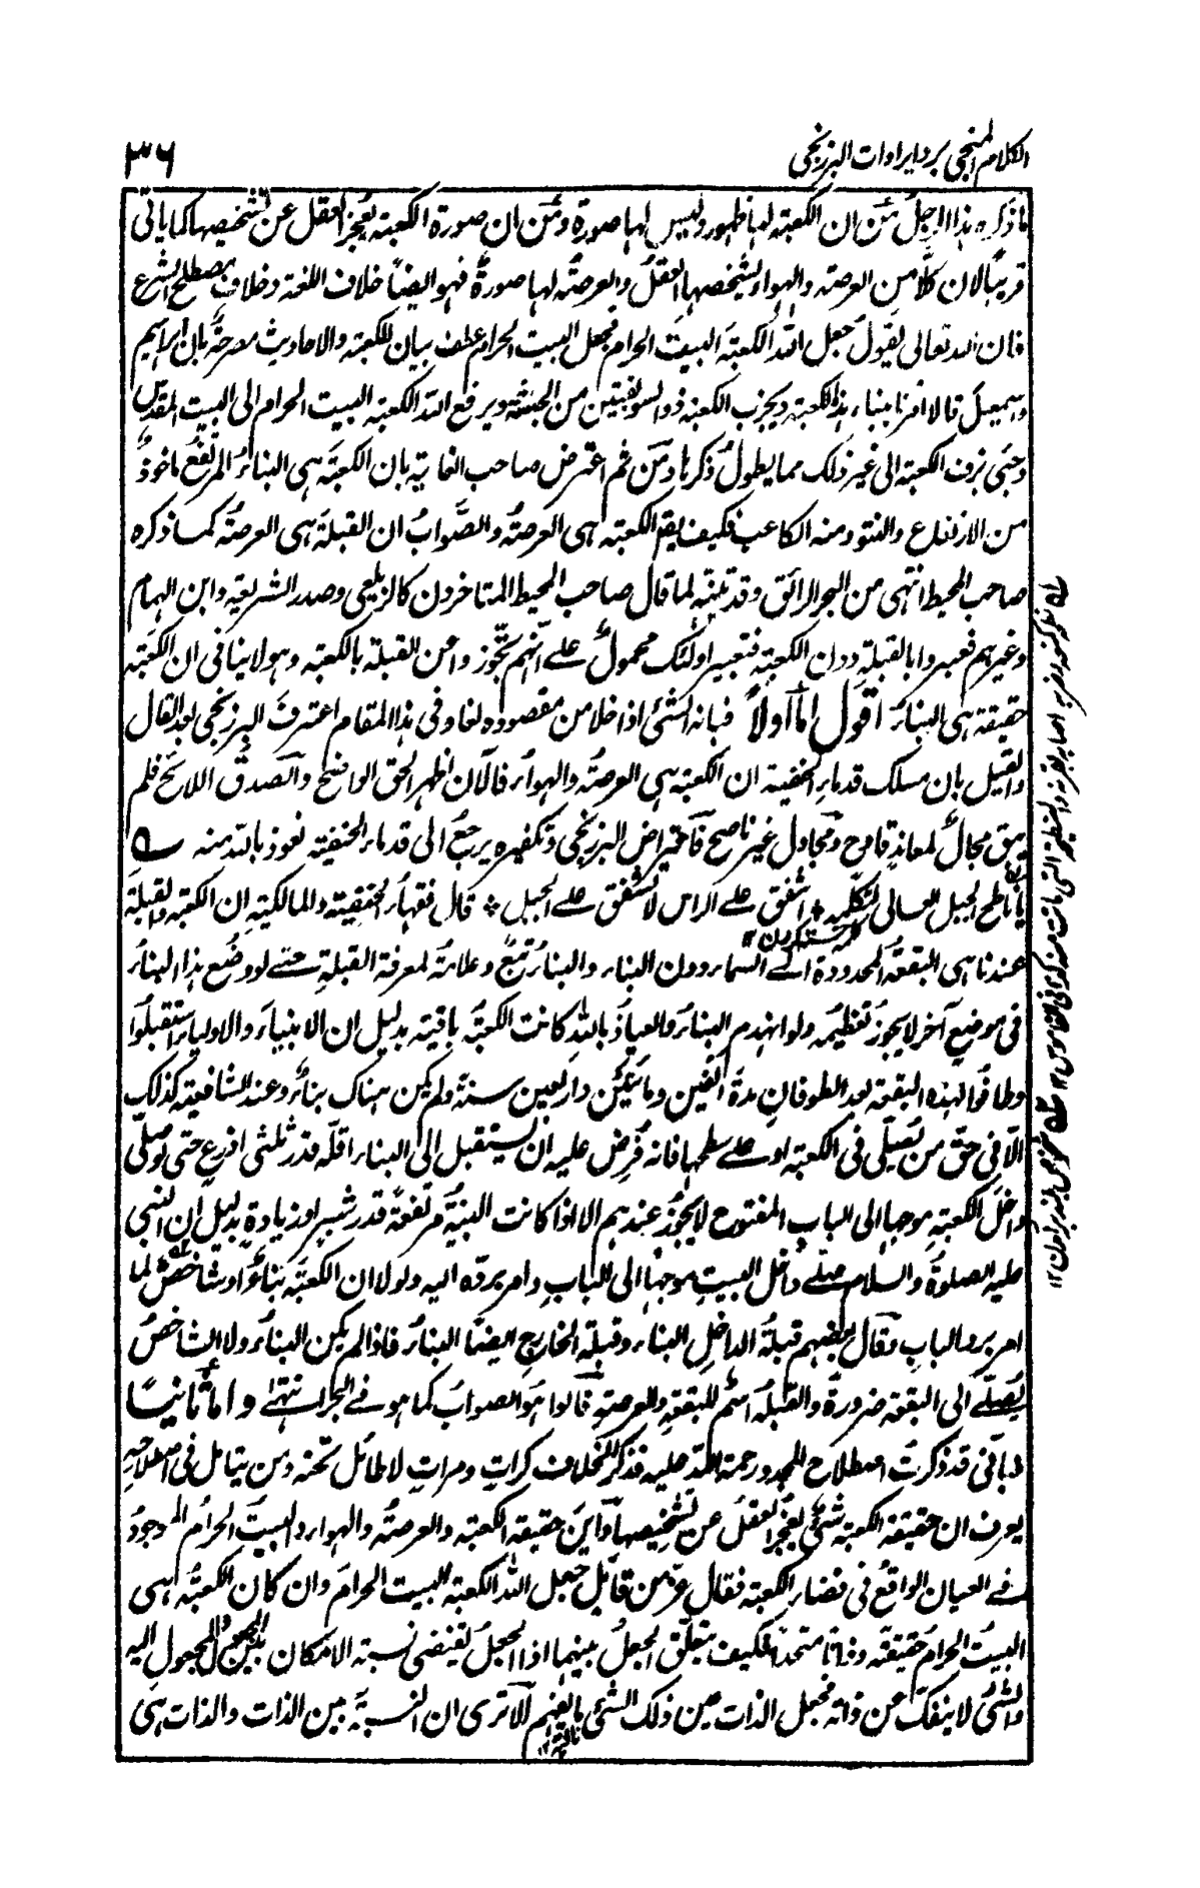 الكلام المنجي برد ايرادات البرزنجي
٣٦
ما ذكره هذا الرجل من ان الكعبة لها ظهور وليس لها صورة ومن ان صورة الكعبة يعجز العقل عن تشخيصها كما ياتي
قريبًا لان كلًّا من العرصة والهواء يشخصها العقل والعرصةُ لها صورةٌ فهو ايضًا خلاف اللغة وخلاف مصطلح الشرع
فان الله تعالى يقول جعل الله الكعبةَ البيتَ الحرام فجعل البيت الحرام عطف بيان للكعبة والاحاديث مصرحةٌ بان ابراهيم
واسمعيل قالا امرنا ببناء هذه الكعبة ويخرب الكعبة ذو السويقتين من الحبشة ويرفع الله الكعبة البيت الحرام الى البيت المقدس
وحتى تزف الكعبة الى غير ذلك مما يطول ذكرها ومن ثم اعترض صاحب الغاية بان الكعبةَ هي البناءُ المرتفع ماخوذٌ
من الارتفاع والنتو ومنه الكاعب فكيف يقع الكعبة هي العرصةُ والصَّوابُ ان القبلةَ هي العرصةُ كما ذكره
صاحب المحيط انتهى من البحر الرائق وقد تنبّه لما قال صاحب المحيط المتاخرون كالزيلعي وصدر الشريعة وابن الهمام
وغيرهم فعبروا بالقبلةِ دون الكعبةِ فتعبير اولئك محمولٌ على انهم تجوّزوا عن القبلة بالكعبة وهو لا ينافي ان الكعبة
حقيقة هي البناء اقول اما اولًا فبانه الشئ اذا خلا من مقصوده لغا وفي هذا المقام اعترف البرزنجي بعد القال
والقيل بان مسلك قدماء الحنفية ان الكعبة هي العرصةُ والهواء فالآن اظهر الحق الواضح والصدق اللائح فلم
يبق مجالٌ لمعاند قادح ومجادل غير ناصح فاعتراض البرزنجي وتكفيره يرجع الى قدماء الحنفية نعوذ بالله منه
يا ناطح الجبل العالي لتكلمه * اشفق على الراس لا تشفق على الجبل * قال فقهاء الحنفية والمالكية ان الكعبة والقبلة
خستہ کردن ١٢
عندنا هي البقعة المحدودة الى السماء دون البناء والبناءُ تبعٌ وعلامةٌ لمعرفة القبلةِ حتى لو وضع هذا البناءُ
في موضع آخر لا يجوز تعظيمه ولو انهدم البناءُ والعياذُ باللهِ كانت الكعبةُ باقية بدليل ان الانبياءَ والاولياءَ استقبلوا
وطافوا لهذه البقعة بعد الطوفانِ مدة الفين ومائتين واربعين سنة ولم يكن هناك بناءٌ وعند الشافعية كذلك
الا في حق من يُصلّي في الكعبة او على سطحها فانه فرض عليه ان يستقبل الى البناء اقلّه قدر ثلثى اذرع حتى لو صلّى
داخل الكعبةِ موجهًا الى الباب المفتوح لا يجوز عندهم الا اذا كانت البنية مرتفعةً قدر شبرٍ او زيادةٍ بدليل ان النبي
عليه الصلوة والسلام صلى داخل البيتِ موجهًا الى الباب وامر بردّه اليه ولولا ان الكعبة بناءٌ او شاخصٌ لما
امر برد الباب وقال بعضهم قبلةُ الداخلِ البناء وقبلة الخارج ايضًا البناءُ فاذا لم يكن البناءُ ولا الشاخصُ
يُصلّى الى البقعة ضرورةً والقبلةُ اسمٌ للبقعةِ والعرصةِ قالوا هو الصوابُ كما هو في البحر انتهى واما ثانيًا
فبانى قد ذكرت اصطلاح المجدد رحمة الله عليه فذكر الخلاف كراتٍ ومراتٍ لا طائل تحته ومن يتامل في اصطلاحه
يعرف ان حقيقة الكعبة شئٌ يعجز العقل عن تشخيصها واين حقيقة الكعبة والعرصةُ والهواء والبيتُ الحرام الموجودُ
في العيان الواقع في فضاء الكعبة فقال عزّ من قائل جعل الله الكعبة البيت الحرام وان كان الكعبة هي
البيتُ الحرامُ حقيقةً وذاتًا متحدًا فكيف يتعلق الجعلُ بينهما اذ الجعلُ يقتضى نسبة الامكان بين المجعول والمجعول اليه
والشئُ لا ينفك عن ذاته فجعل الذات عين ذلك الشئ فافهم الا ترى ان النسبة بين الذات والذات هي